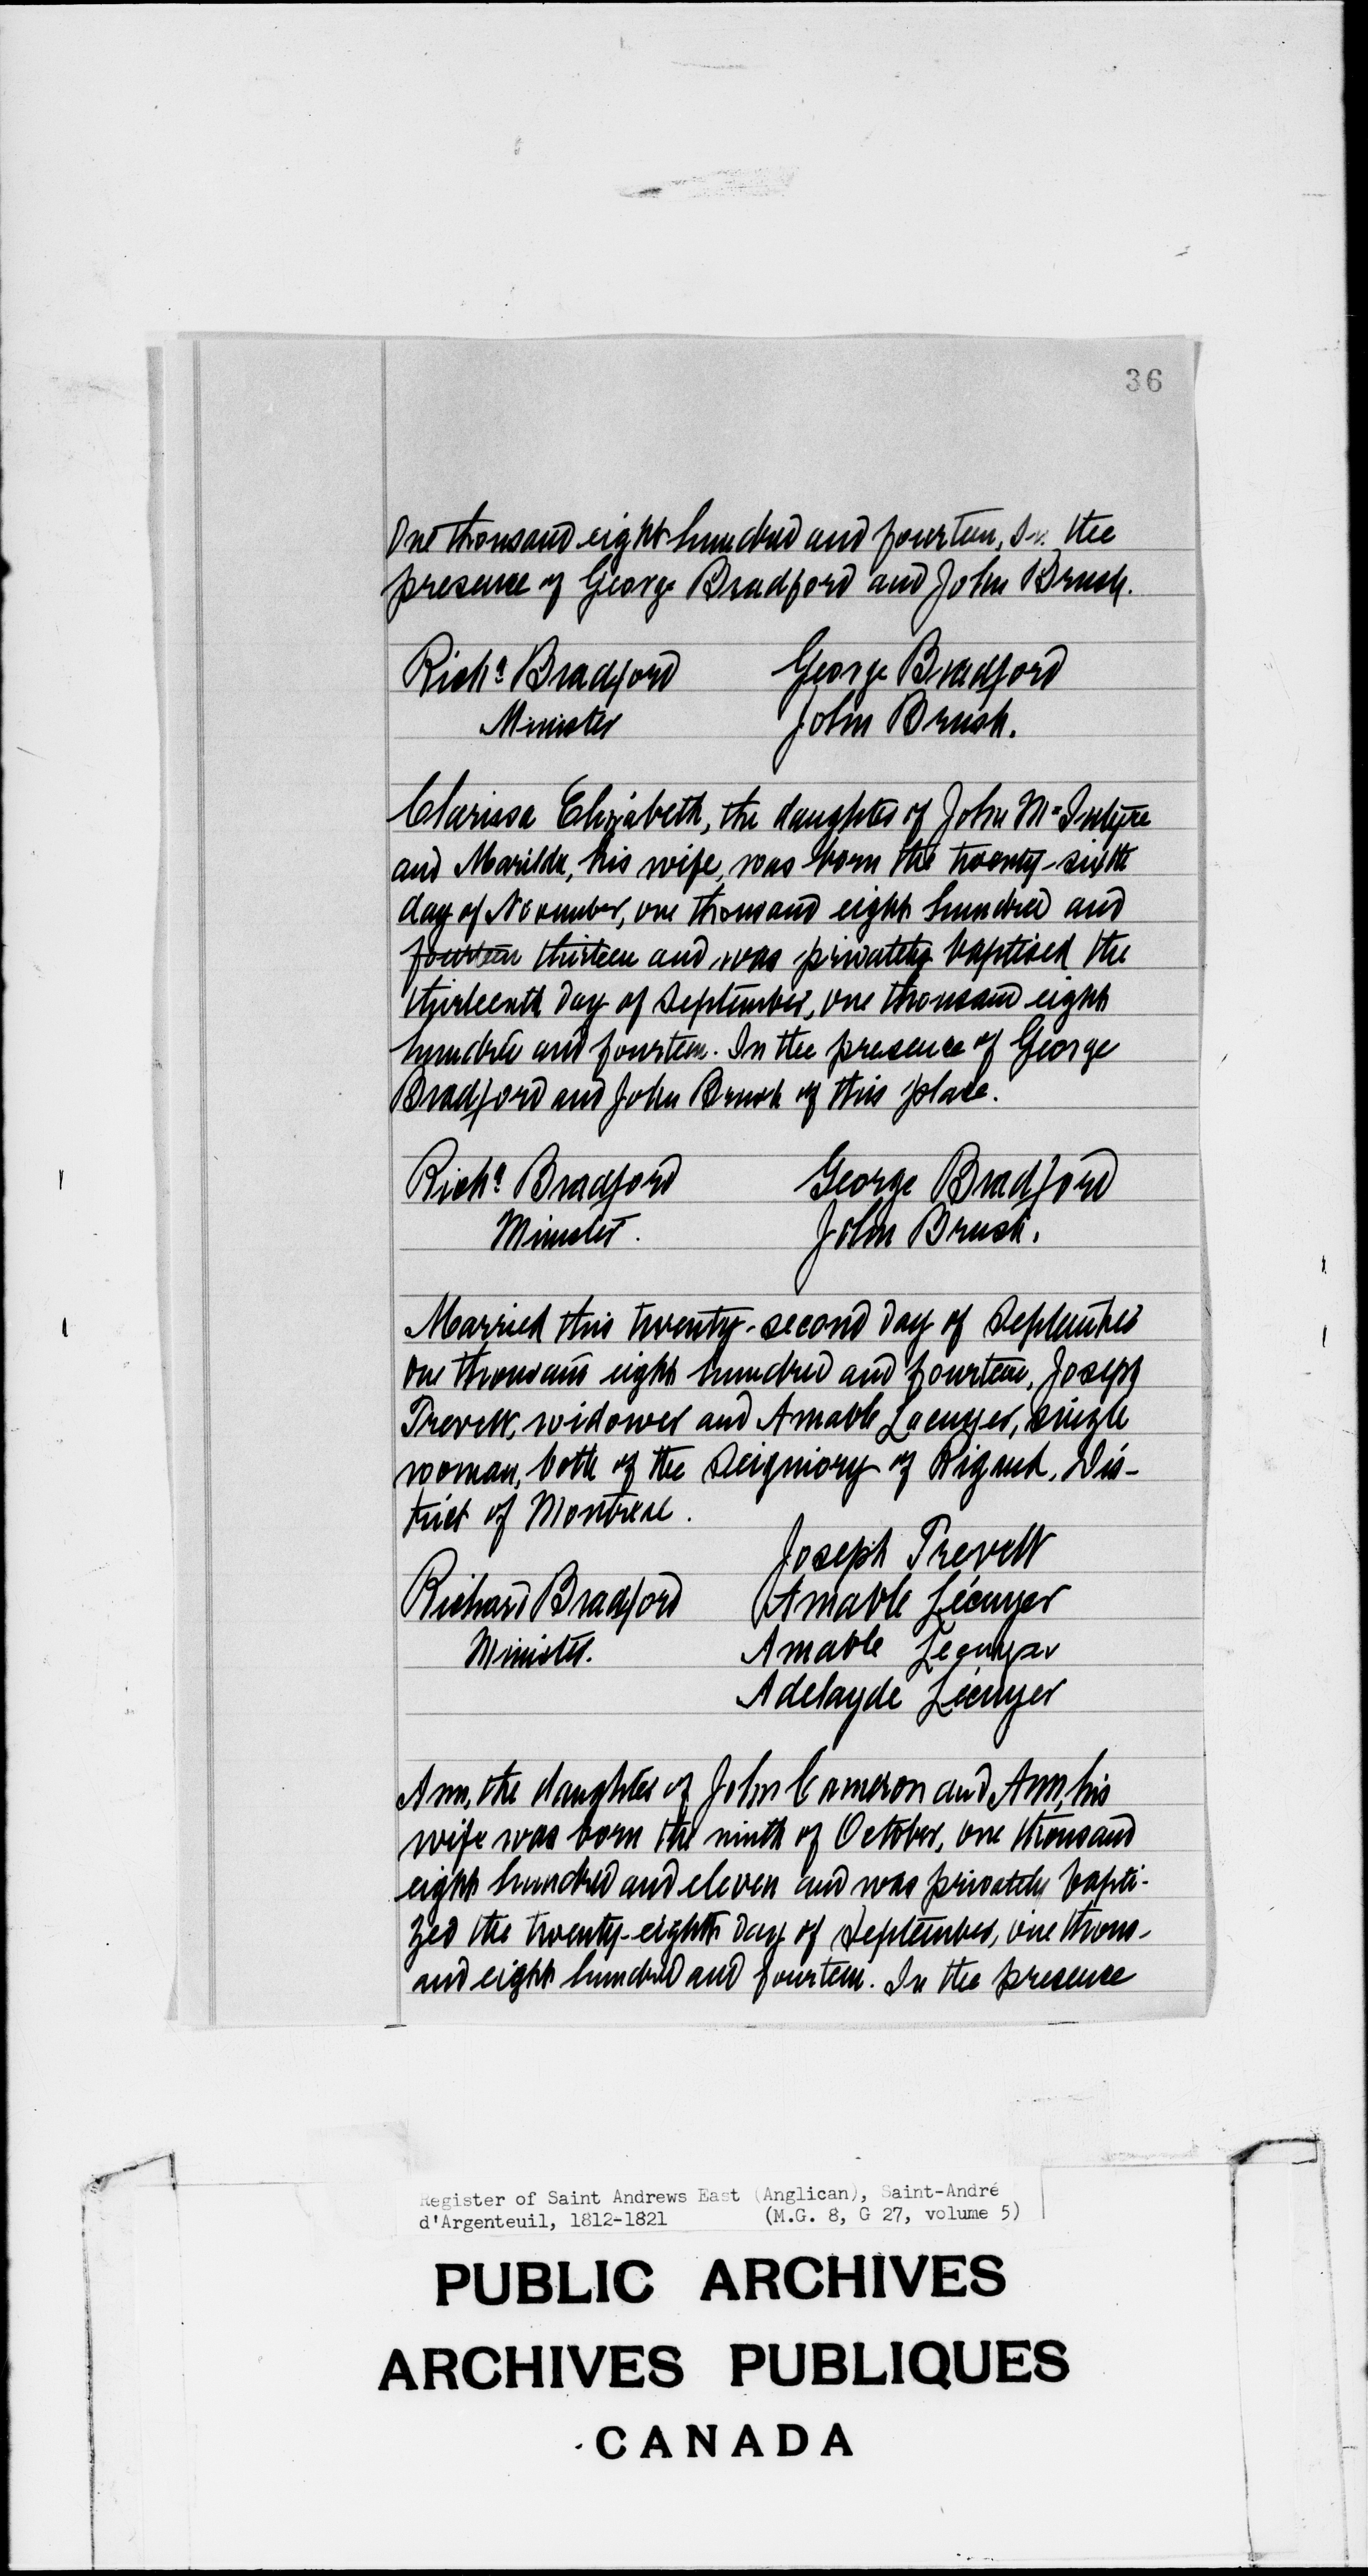 36
One thousand eight hundred and fourteen, In the
presence of George Bradford and John Brush.
Richd Bradford George Bradford
Minister John Brush.
Clarissa Elizabeth, the daughter of John McIntyre
and Marilda, his wife, was born the twenty-sixth
day of November, one thousand eight hundred and
fourteen thirteen and was privately baptised the
thirteenth day of September, one thousand eight
hundred and fourteen. In the presence of George
Bradford and John Brush of this place.
Richd Bradford George Bradford
Minister. John Brush.
Married this twenty-second day of September
one thousand eight hundred and fourteen, Joseph
widower and Amable single
woman, both of the Seigniory of Rigaud, Dis-
trict of Montreal.
Joseph
Richard Bradford Amable Lécuyer
Minister. Amable Lecuyer
Adelayde Lécuyer
Ann, the daughter of John Cameron and Ann, his
wife was born the ninth of October, one thousand
eight hundred and eleven and was privately bapti-
zed the twenty-eighth day of September, one thous-
and eight hundred and fourteen. In the presence
Register of Saint Andrews East (Anglican), Saint-André
d'Argenteuil, 1812-1821 (M.G. 8, G 27, volume 5)
PUBLIC ARCHIVES
ARCHIVES PUBLIQUES
CANADA